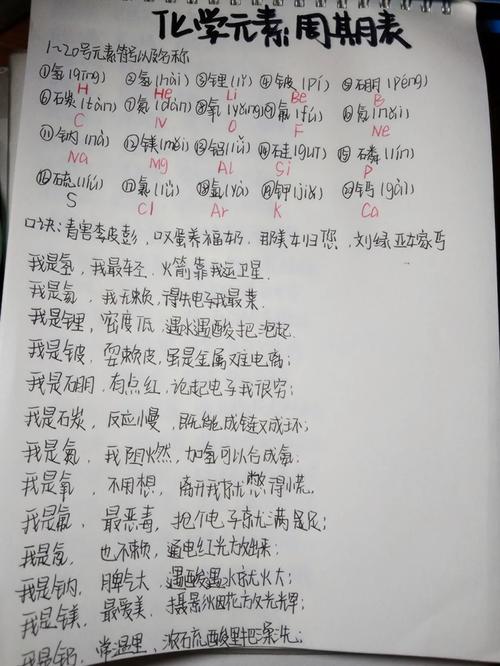 化学元素周期表
1~20号元素符号以及名称
①氢(qīng) ②氦(hài) ③锂(lǐ) ④铍(pí) ⑤硼(péng)
H He Li Be B
⑥碳(tàn) ⑦氮(dàn) ⑧氧(yǎng) ⑨氟(fú) ⑩氖(nǎi)
C N O F Ne
⑪钠(nà) ⑫镁(měi) ⑬铝(lǚ) ⑭硅(guī) ⑮磷(lín)
Na Mg Al Si P
⑯硫(liú) ⑰氯(lǜ) ⑱氩(yà) ⑲钾(jiǎ) ⑳钙(gài)
S Cl Ar K Ca
口诀:青害李皮彭,叹蛋养福奶,那美女归您,刘绿亚家丐
我是氢,我最轻,火箭靠我运卫星,
我是氦,我无赖,得失电子我最菜.
我是锂,密度低,遇水遇酸把泡起.
我是铍,耍赖皮,虽是金属难电离;
我是硼,有点红,论起电子我很穷;
我是碳,反应慢,既能成链又成环;
我是氮,我阻燃,加氢可以合成氨.
我是氧,不用想,离开我就憋得慌.
我是氟,最恶毒,抢个电子就满足;
我是氖,也不赖,通电红光放出来;
我是钠,脾气大,遇酸遇水就火大;
我是镁,最爱美,摄影烟花放光辉;
我是铝,常温里,浓硫酸里把澡洗;